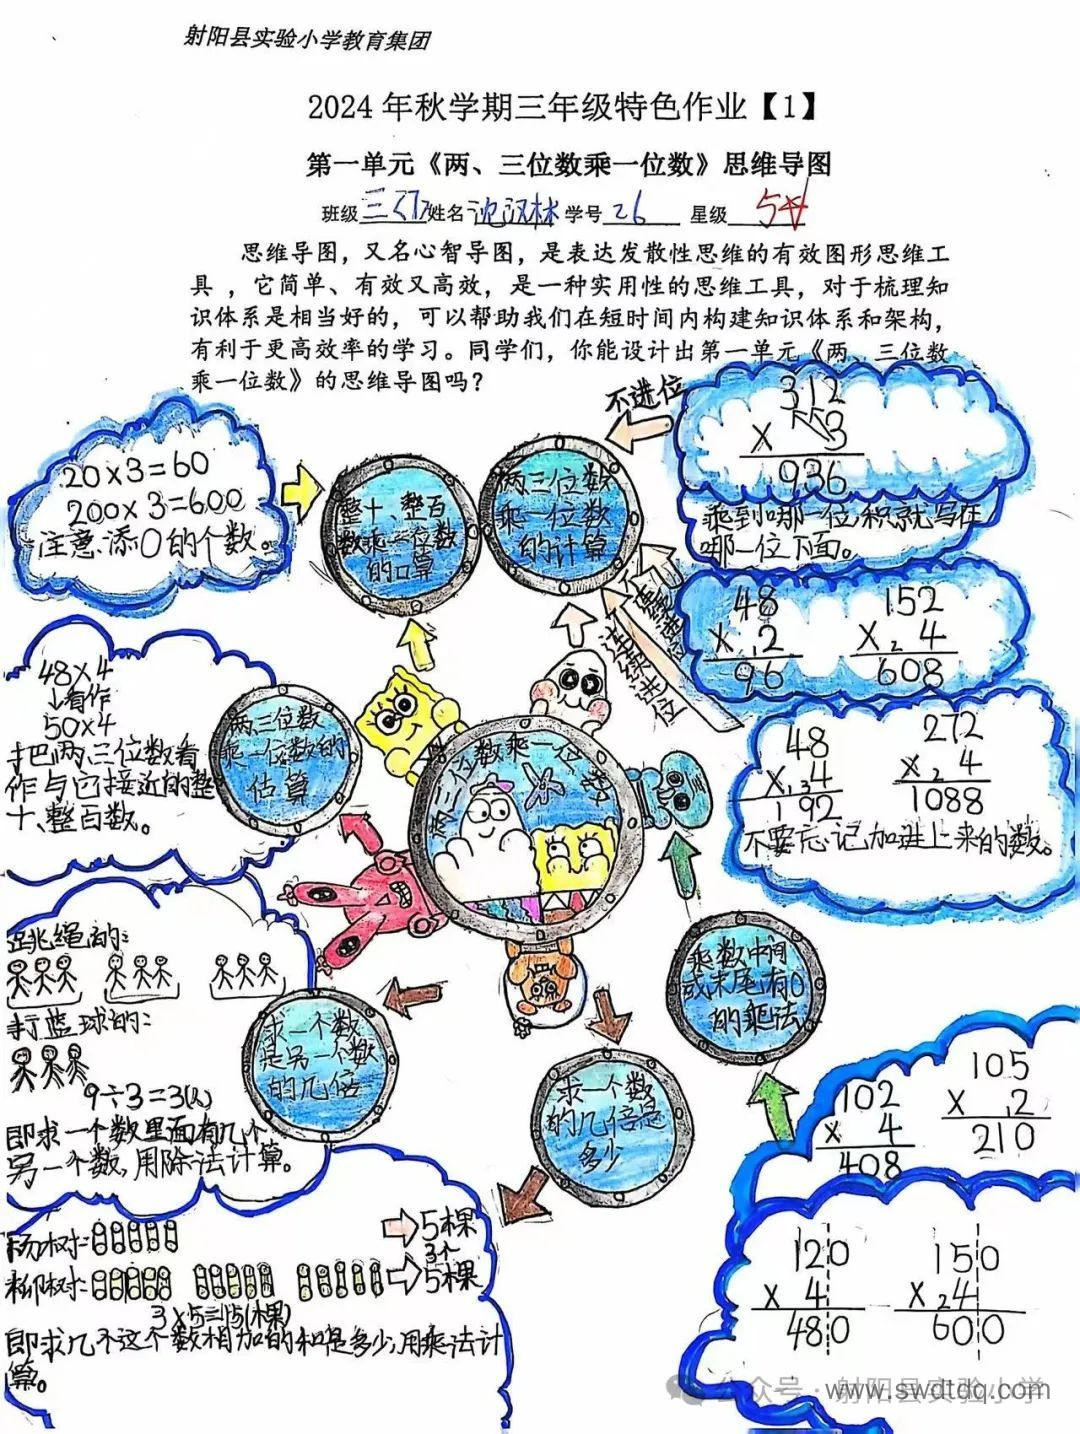 射阳县实验小学教育集团
2024年秋学期三年级特色作业【1】
第一单元《两、三位数乘一位数》思维导图
班级 三(7) 姓名 沈汉林 学号 26 星级 5☆
思维导图，又名心智导图，是表达发散性思维的有效图形思维工
具，它简单、有效又高效，是一种实用性的思维工具，对于梳理知
识体系是相当好的，可以帮助我们在短时间内构建知识体系和架构，
有利于更高效率的学习。同学们，你能设计出第一单元《两、三位数
乘一位数》的思维导图吗？
20×3=60
200×3=600
注意:添0的个数。
整十、整百
数乘一位数
的口算
两三位数
乘一位数
的计算
不进位
312
× 3
936
乘到哪一位积就写在
哪一位下面。
不连续进位
48
×₁2
96
152
×₂4
608
连续进位
48
×₁₃4
192
272
×₂4
1088
不要忘记加进上来的数。
48×4
↓看作
50×4
把两、三位数看
作与它接近的整
十、整百数。
两三位数
乘一位数的
估算
两三位数乘一位数
跳绳的:
打篮球的:
9÷3=3(人)
即求一个数里面有几个
另一个数,用除法计算。
求一个数
是另一个数
的几倍
求一个数
的几倍是
多少
杨树: 5棵
柳树: 3个
5棵
3×5=15(棵)
即求几个这个数相加的和是多少,用乘法计
算。
乘数中间
或末尾有0
的乘法
102
× 4
408
105
×₁2
210
120
× 4
480
150
×₂4
600
公众号·射阳县实验小学
www.swdtdq.com